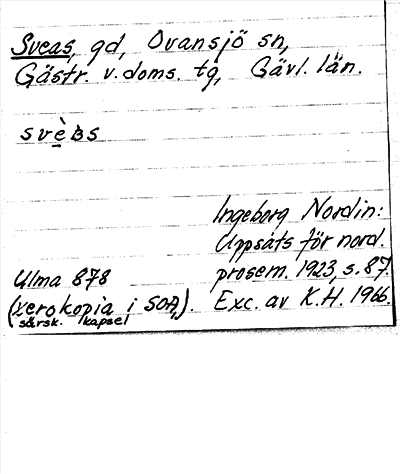 Sveas, gd, Ovansjö sn,
Gästr. v. doms. tg, Gävl. län.
Ingeborg Nordin:
Uppsats för nord.
Ulma 878 prosem. 1923, s. 87.
(xerokopia i SOA,). Exc. av K.H. 1966.
särsk. kapsel